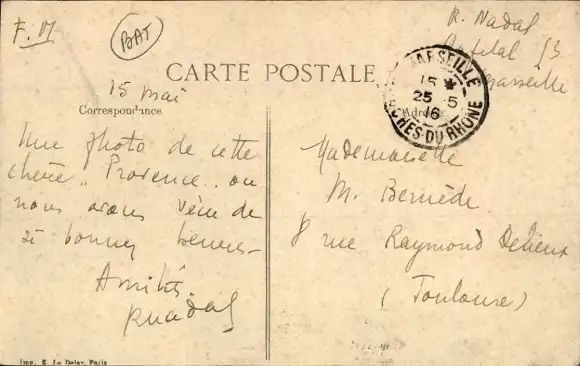 F. M
BAT
R. Nadal
Hopital 53
Marseille
MARSEILLE
15 *
25 - 5
16
BCHES-DU-RHÔNE
CARTE POSTALE
15 mai
Correspondance
Une photo de cette
chère "Provence" ou
nous avons vécu de
si bonnes heures -
Amitiés.
RNadal
Mademoiselle
M. Bernède
8 rue Raymond
(Toulouse)
Imp. E. Le Deley, Paris